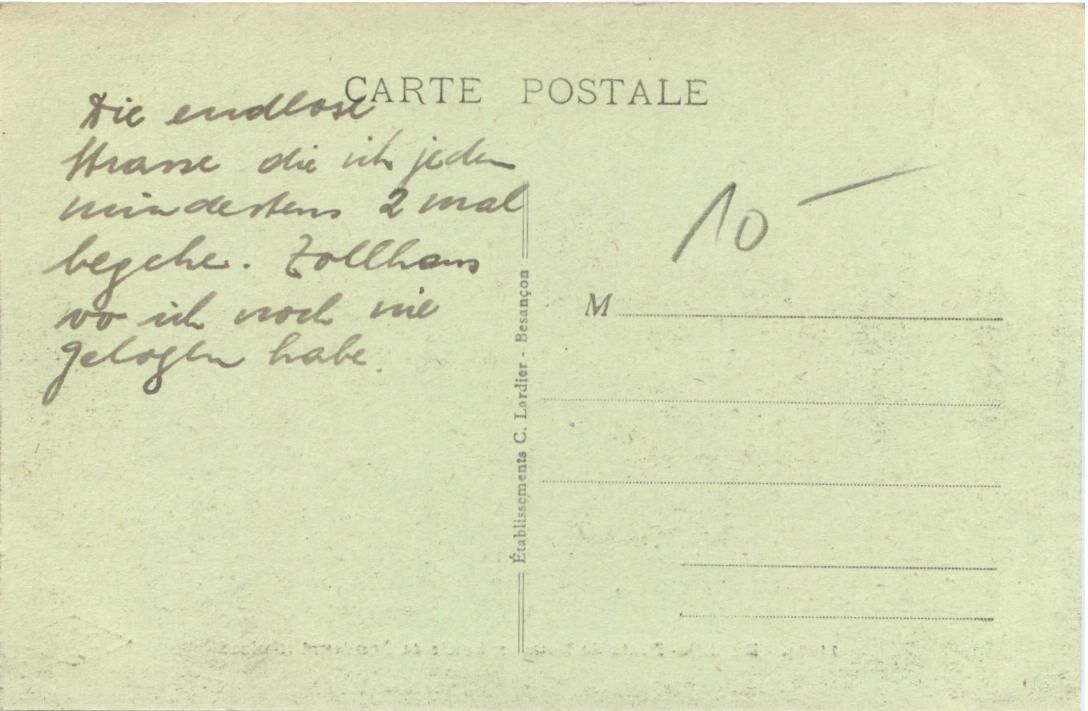 CARTE POSTALE
Die endlose
Strasse die ich jeden
mindestens 2 mal
begehe. Zollhaus
wo ich noch nie
gelogen habe.
10 —
M
Établissements C. Lardier - Besançon